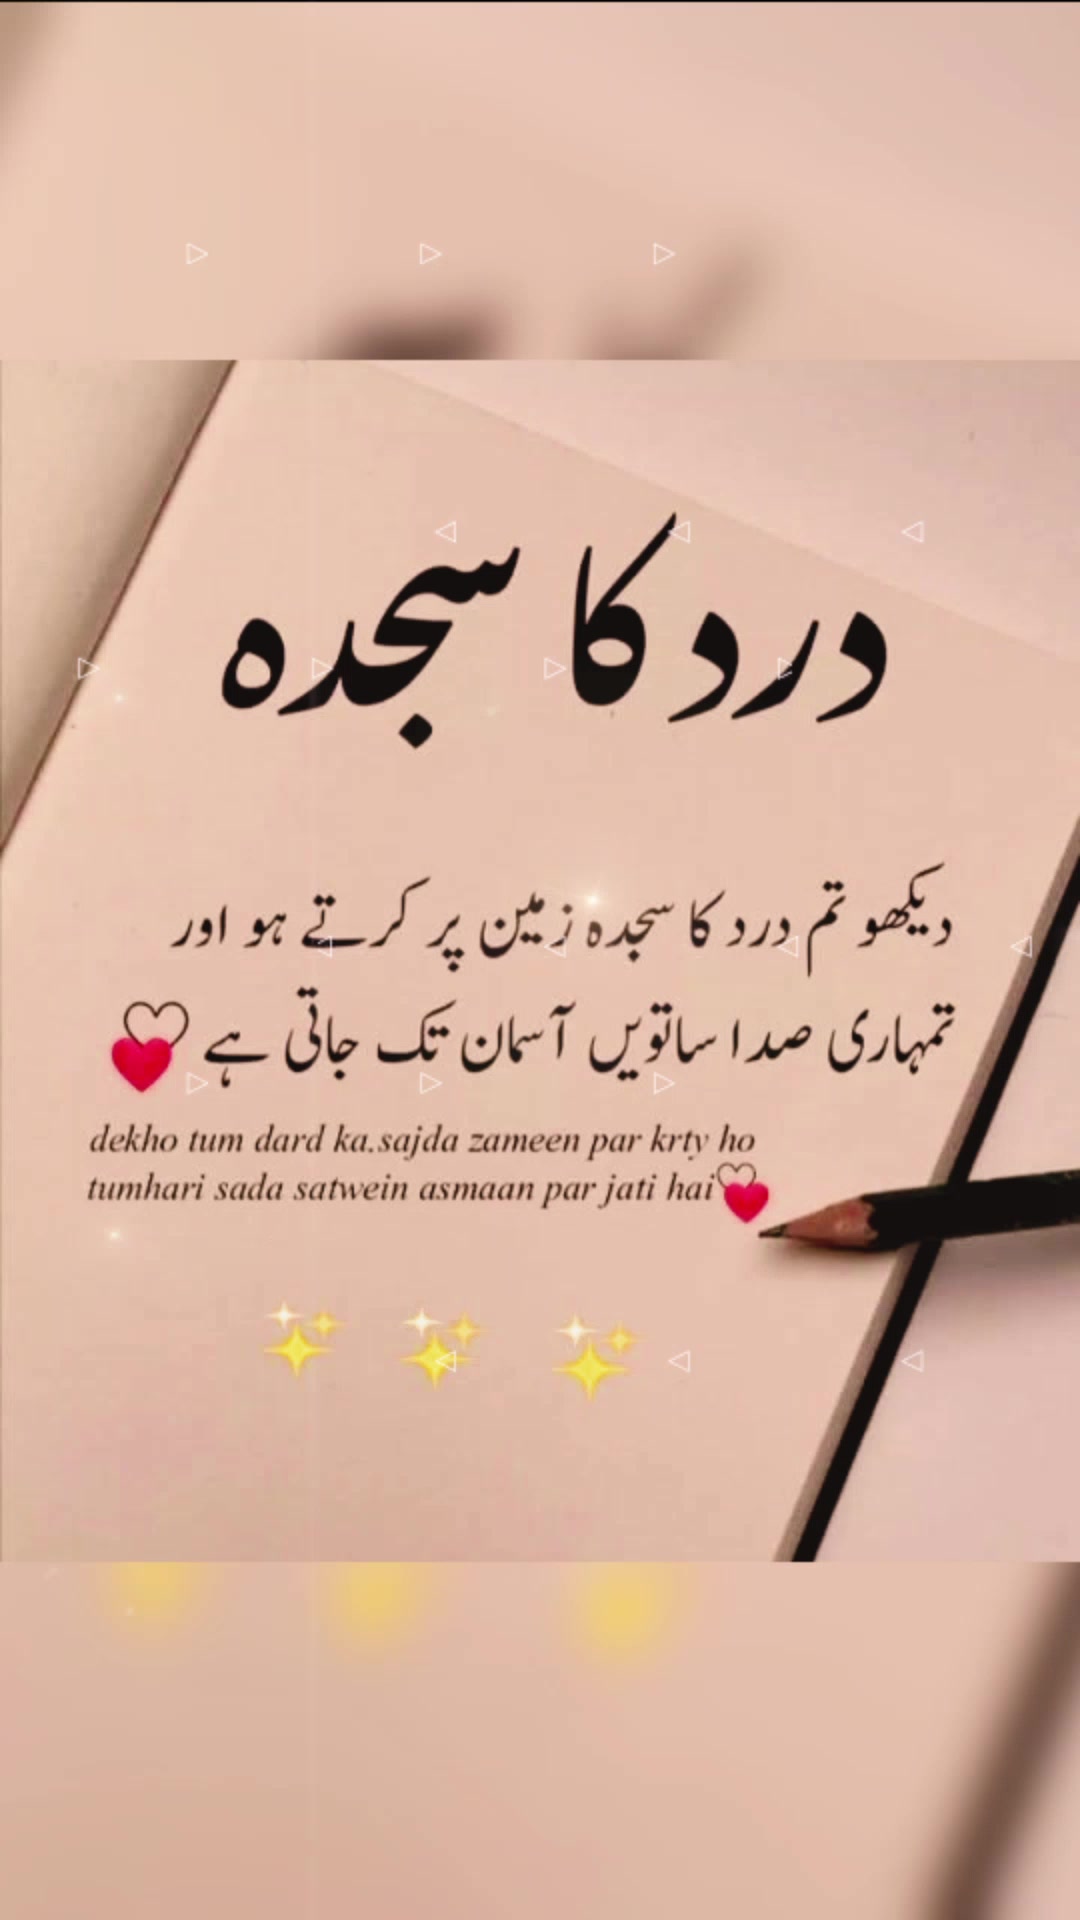 درد کا سجدہ
دیکھو تم درد کا سجدہ زمین پر کرتے ہو اور
تمہاری صدا ساتویں آسمان تک جاتی ہے
dekho tum dard ka.sajda zameen par krty ho
tumhari sada satwein asmaan par jati hai